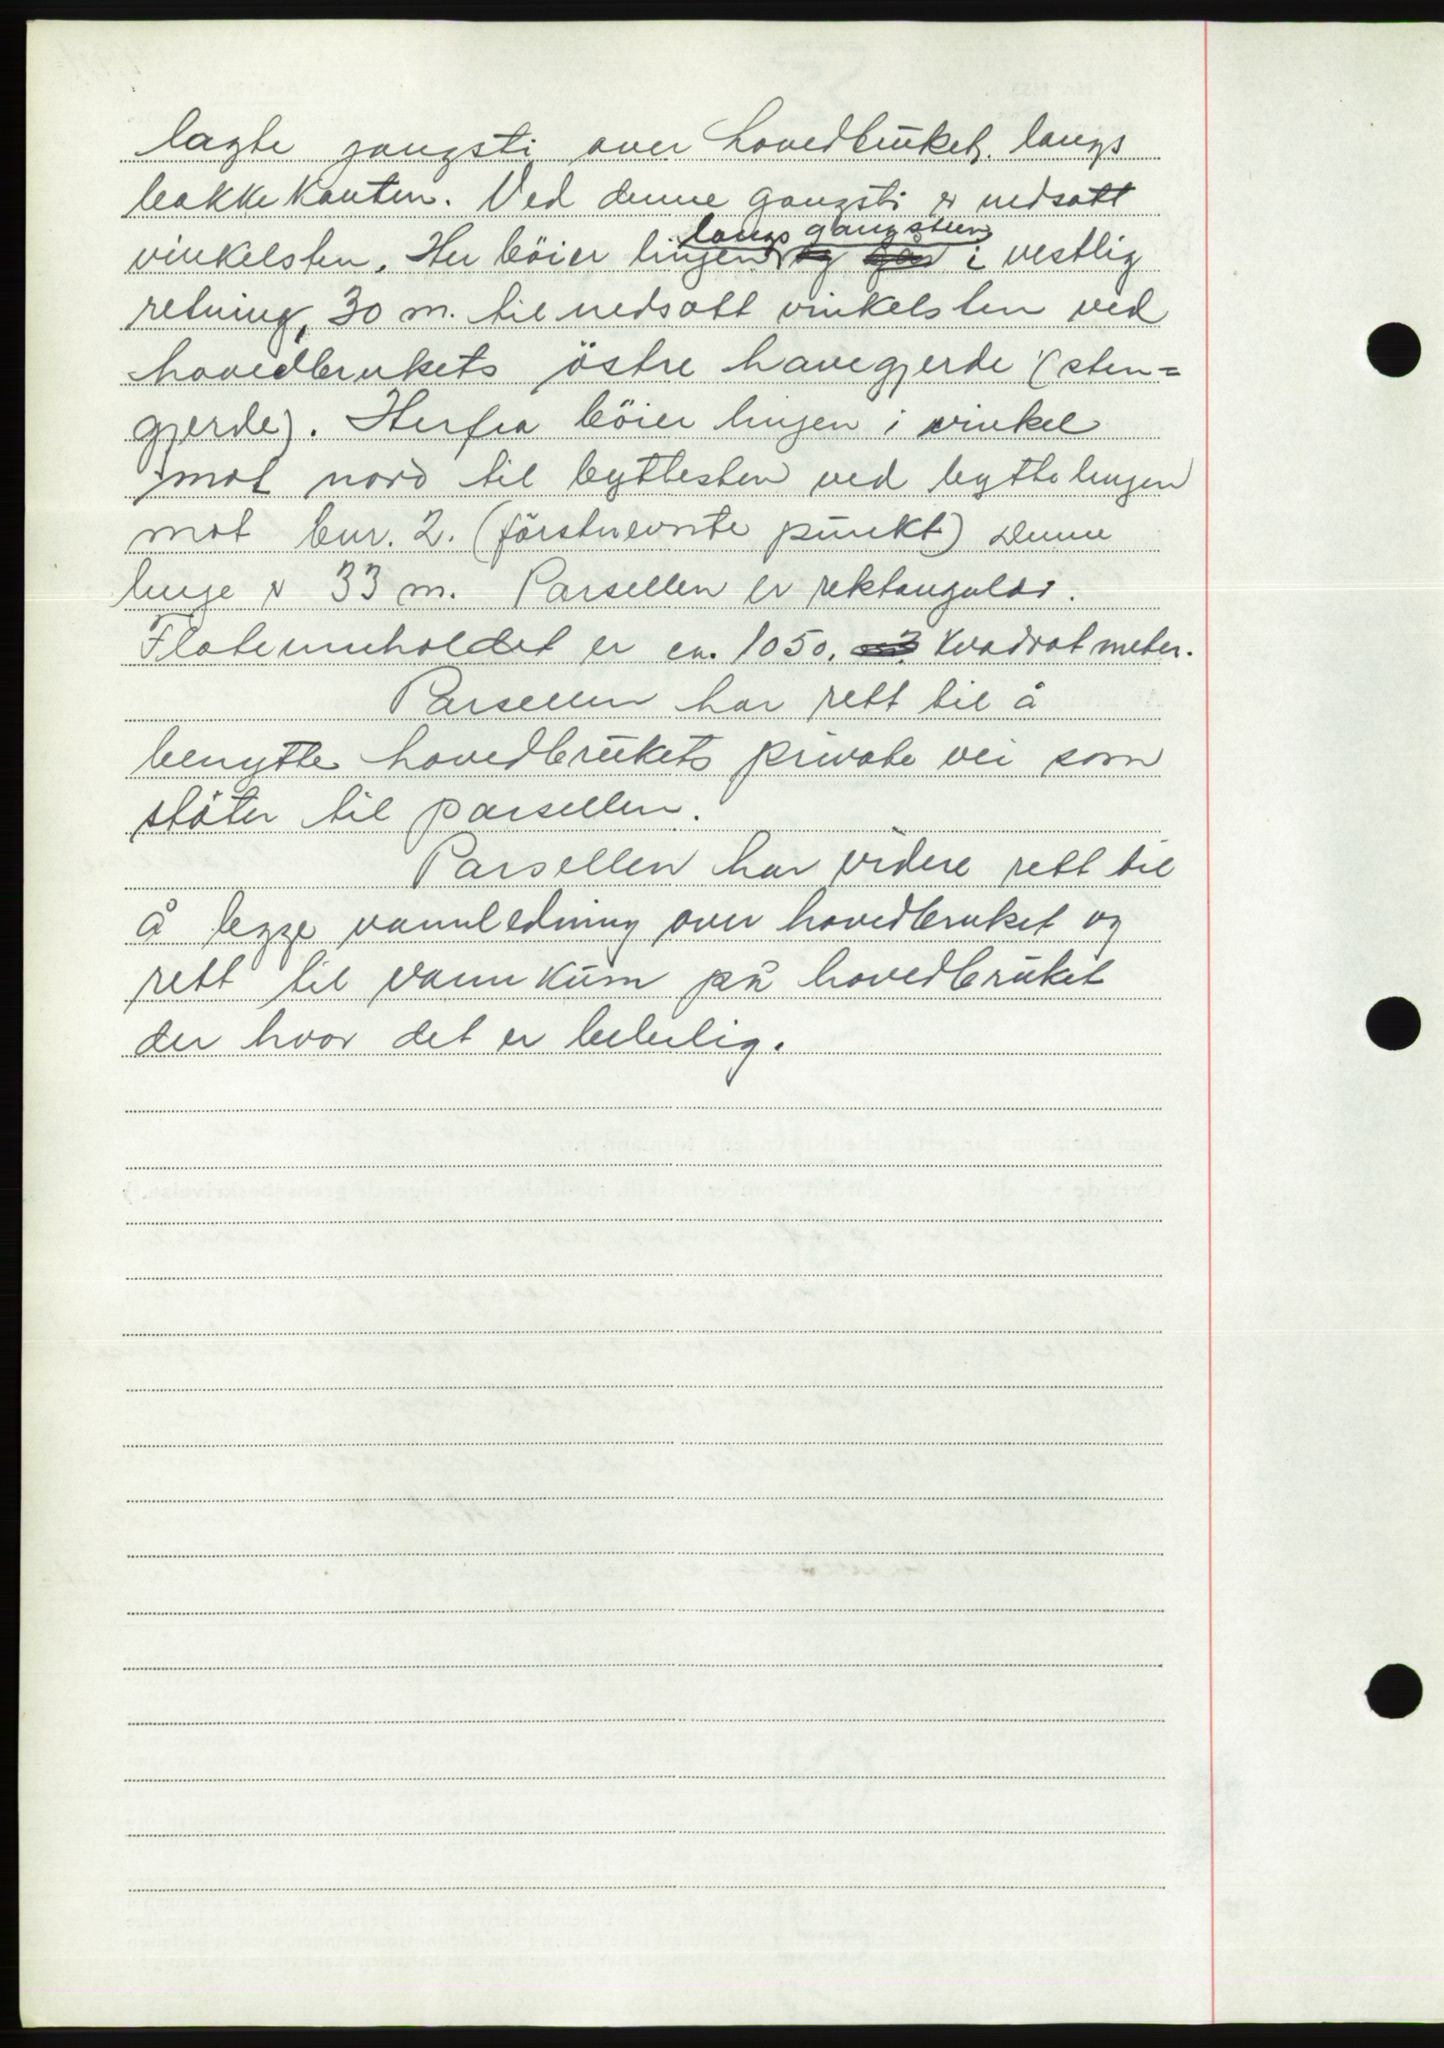 lagte gangsti over hovedbruket, langs
bakkekanten. Ved denne gangsti er nedsatt
langs gangstien
vinkelsten. Her böier linjen og går i vestlig
retning, 30 m. til nedsatt vinkelsten ved
hovedbrukets östre havegjerde (sten=
gjerde). Herfra böier linjen i vinkel
mot nord til byttesten ved byttelinjen
mot bnr. 2. (förstnevnte punkt) Denne
linje er 33 m. Parsellen er rektangulär.
Flateinnholdet er ca. 1050. m2 kvadratmeter.
Parsellen har rett til å
benytte hovedbrukets private vei som
stöter til parsellen.
Parsellen har videre rett til
å legge vannledning over hovedbruket og
rett til vannkum på hovedbruket
der hvor det er beleilig.